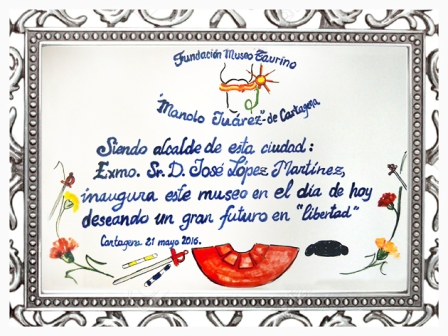 Fundación Museo Taurino
"Manolo Juárez" de Cartagena
Siendo alcalde de esta ciudad:
Exmo. Sr. D. José López Martínez,
inaugura este museo en el día de hoy
deseando un gran futuro en "libertad"
Cartagena. 21 mayo 2016.